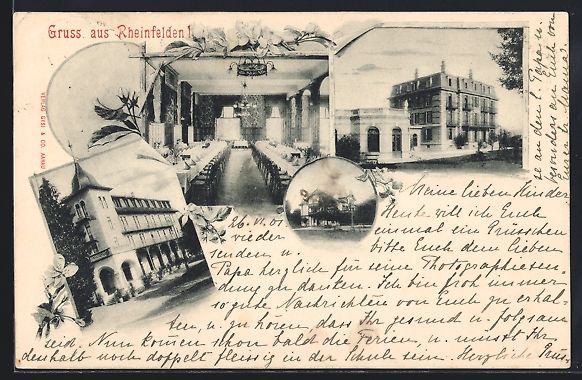 Gruss aus Rheinfelden!
VERLAG GYSI & CO. AARAU
Meine lieben Kinder
26.VI.01. Heute will ich Euch
wieder einmal ein Grüsschen
senden u. bitte Euch dem lieben
Papa herzlich für seine Photographiesen-
dung zu danken. Ich bin froh immer
so gute Nachrichten von Euch zu erhal-
ten, u. zu hören, dass Ihr gesund u. folgsam
seid. Nun kommen schon bald die Ferien, u. müsst Ihr
deshalb noch doppelt fleissig in der Schule sein. Herzliche Grüs-
se an den l. Papa u.
besonders an Euch von
Eurer l. Mama.